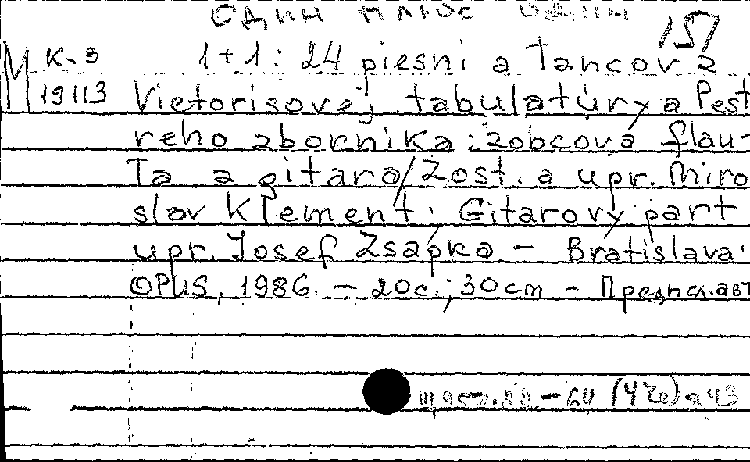 один плюс один
151
1+1: 24 piesní a tancov z
M К-3
19113 Vietorisovej tabulatúry a Pest
reho zborníka: zobcová flau-
ta a gitara/Zost. a upr. Miro
slav Klement. Gitarový part
upr. Josef Zsapka - Bratislava:
OPUS, 1986. - 20с.; 30cm - Предисл. авт